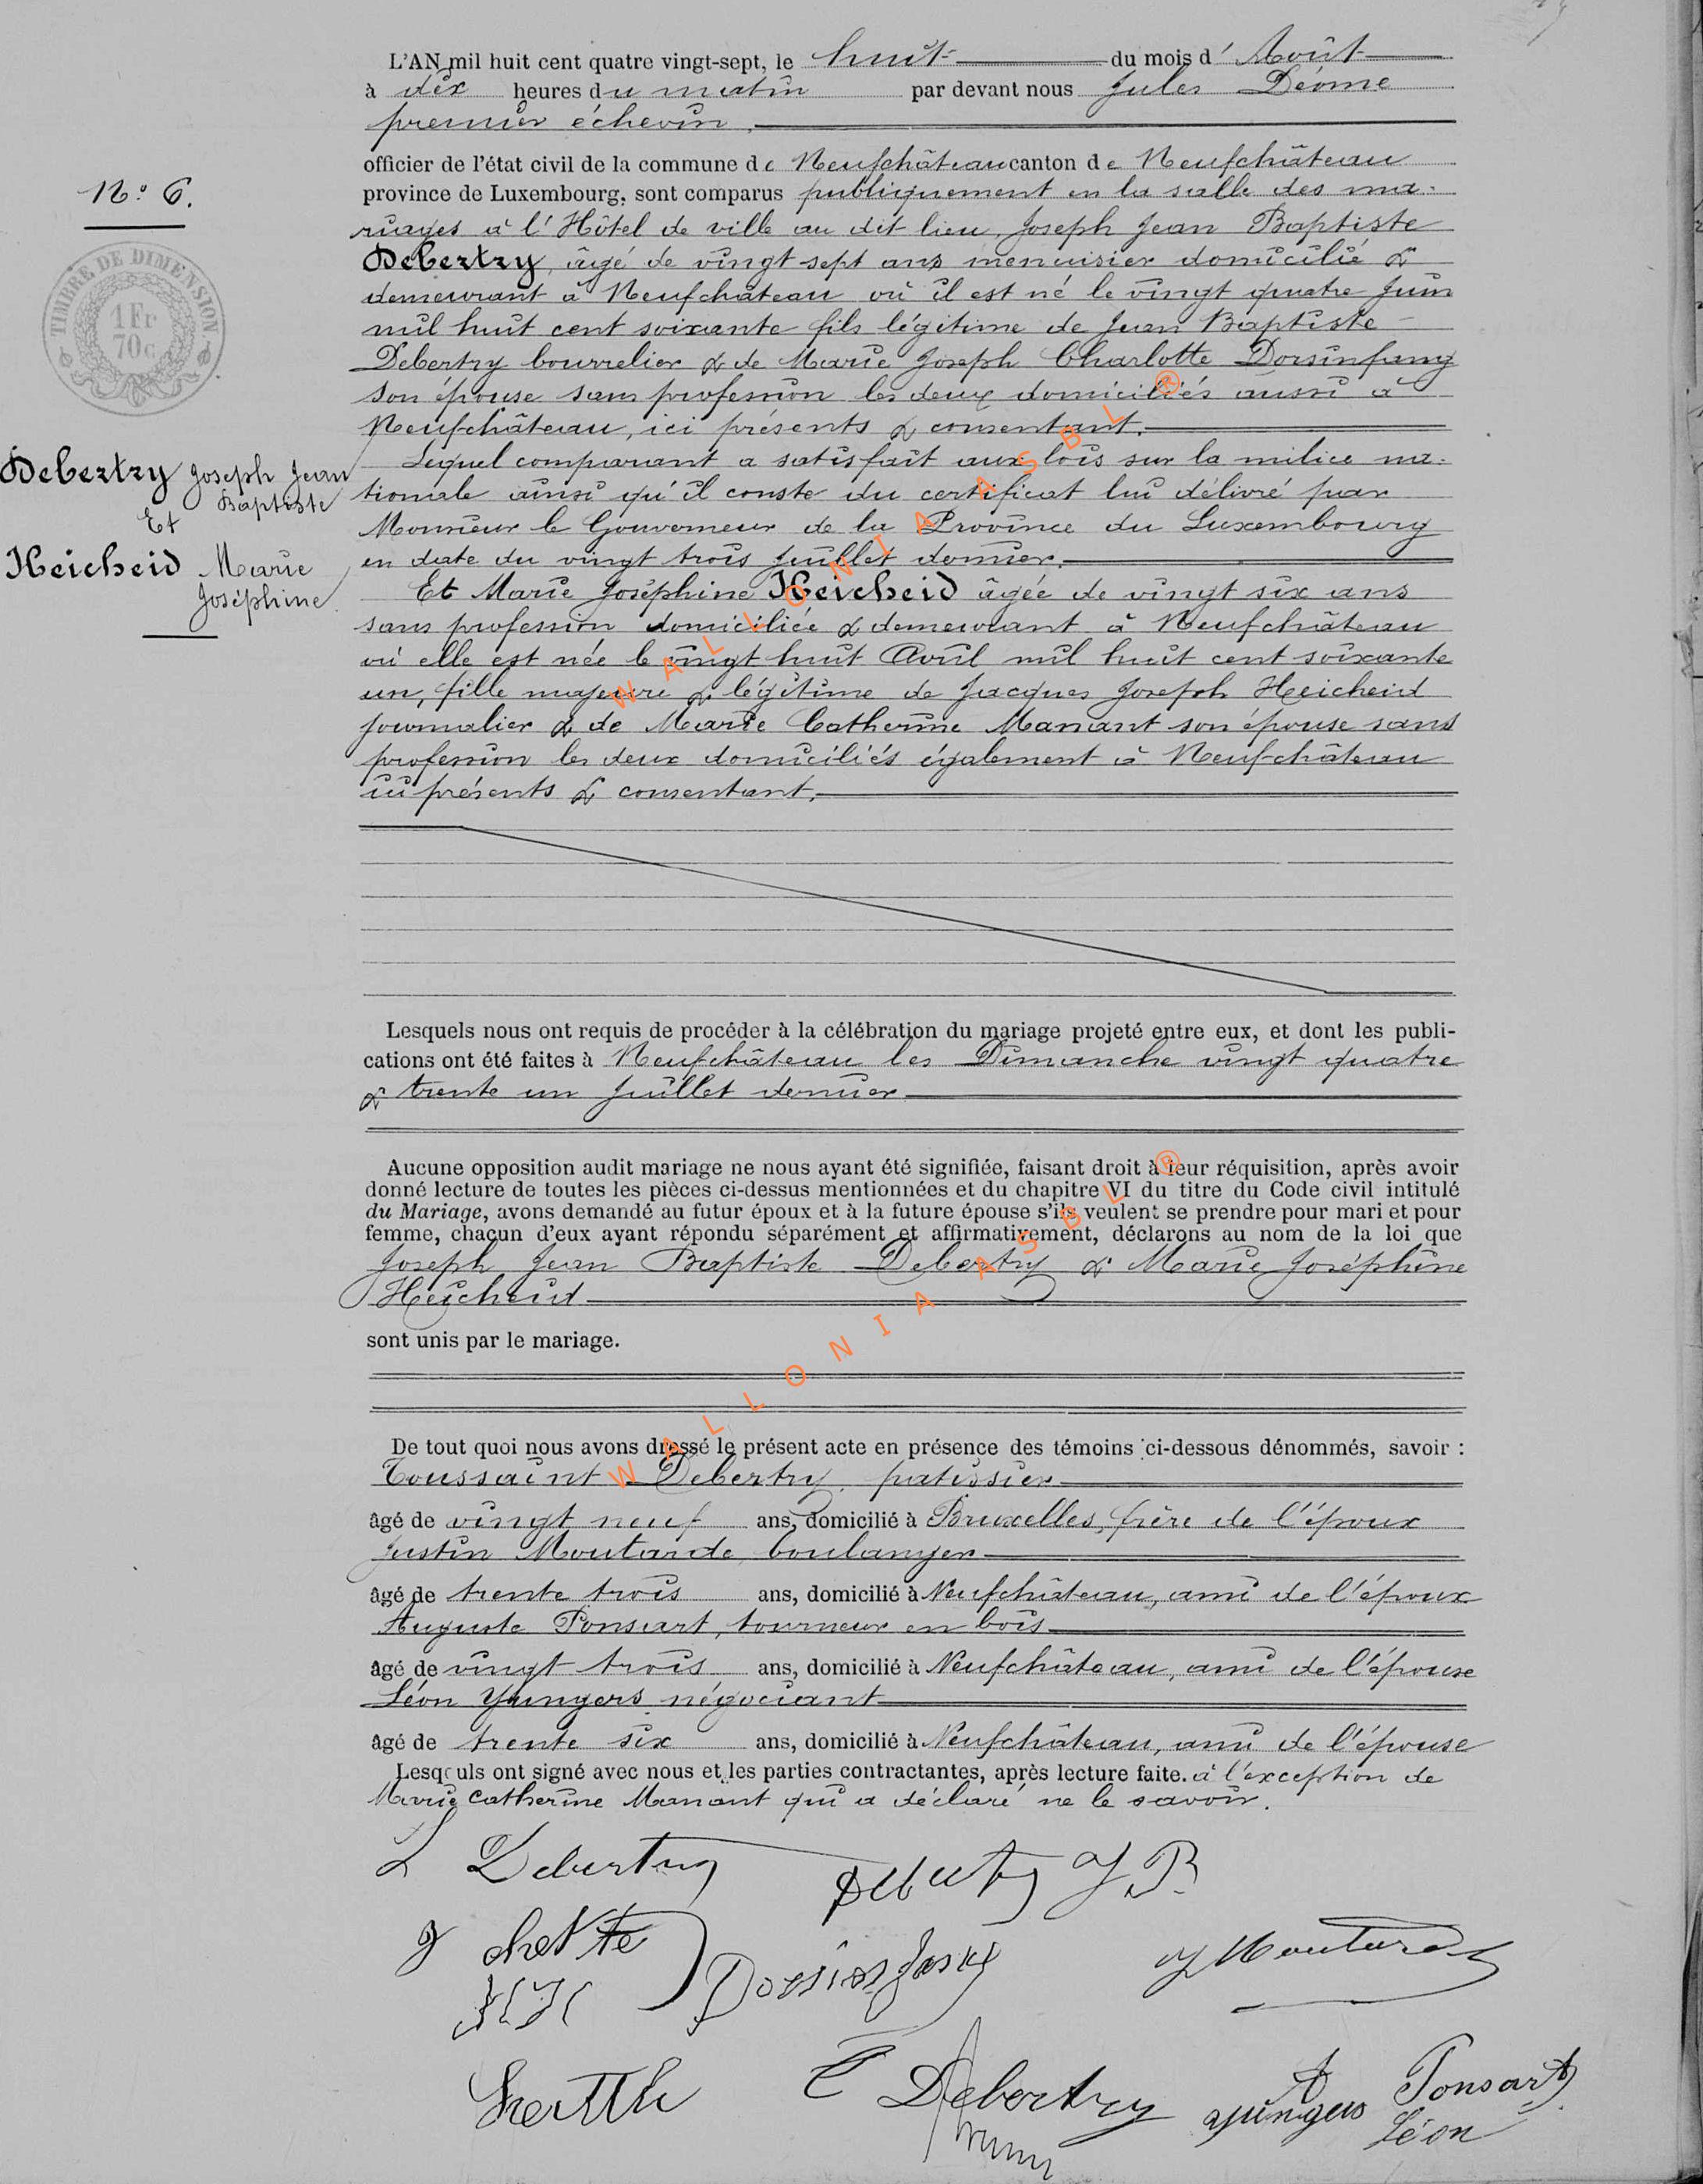 L'AN mil huit cent quatre vingt-sept, le huit du mois d' Août
à dix heures du matin par devant nous Jules Déome
premier échevin.
officier de l'état civil de la commune de Neufchâteau canton de Neufchâteau
province de Luxembourg, sont comparus publiquement en la salle des ma-
riages à l'Hôtel de ville au dit lieu, Joseph Jean Baptiste
Debertry, âgé de vingt sept ans menuisier domicilié &
demeurant à Neufchâteau où il est né le vingt quatre Juin
mil huit cent soixante fils légitime de Jean Baptiste
Debertry bourrelier & de Marie Joseph Charlotte Dorsinfang
son épouse sans profession les deux domiciliés aussi à
Neufchâteau, ici présents & consentant.
Lequel comparant a satisfait aux lois sur la milice na-
tionale ainsi qu'il conste du certificat lui délivré par
Monsieur le Gouverneur de la Province du Luxembourg
en date du vingt trois Juillet dernier.
Et Marie Joséphine Heicheid âgée de vingt six ans
sans profession domiciliée & demeurant à Neufchâteau
où elle est née le vingt huit Avril mil huit cent soixante
un, fille majeure & légitime de Jacques Joseph Heicheid
journalier & de Marie Catherine Manant son épouse sans
profession les deux domiciliés également à Neufchâteau
ici présents & consentant.
N.° 6.
TIMBRE DE DIMENSION
1 Fr
70c
Debertry Joseph Jean
Baptiste
Et
Heicheid Marie
Joséphine
Lesquels nous ont requis de procéder à la célébration du mariage projeté entre eux, et dont les publi-
cations ont été faites à Neufchâteau les Dimanche vingt quatre
& trente un Juillet dernier
Aucune opposition audit mariage ne nous ayant été signifiée, faisant droit à leur réquisition, après avoir
donné lecture de toutes les pièces ci-dessus mentionnées et du chapitre VI du titre du Code civil intitulé
du Mariage, avons demandé au futur époux et à la future épouse s'ils veulent se prendre pour mari et pour
femme, chacun d'eux ayant répondu séparément et affirmativement, déclarons au nom de la loi que
Joseph Jean Baptiste Debertry & Marie Joséphine
Heicheid
sont unis par le mariage.
De tout quoi nous avons dressé le présent acte en présence des témoins ci-dessous dénommés, savoir :
Toussaint Debertry, patissier
âgé de vingt neuf ans, domicilié à Bruxelles, frère de l'époux
Justin Moutarde, boulanger
âgé de trente trois ans, domicilié à Neufchâteau, ami de l'époux
Auguste Ponsart, tourneur en bois
âgé de vingt trois ans, domicilié à Neufchâteau, ami de l'épouse
Léon Yungers négociant
âgé de trente six ans, domicilié à Neufchâteau, ami de l'épouse
Lesquels ont signé avec nous et les parties contractantes, après lecture faite. à l'exception de
Marie Catherine Manant qui a déclaré ne le savoir.
Debertry Debertry J. B.
Dorsinfang J Moutarde
T Debertry A Ponsart
Yungers Léon
WALLONIA ASBL ®
WALLONIA ASBL ®